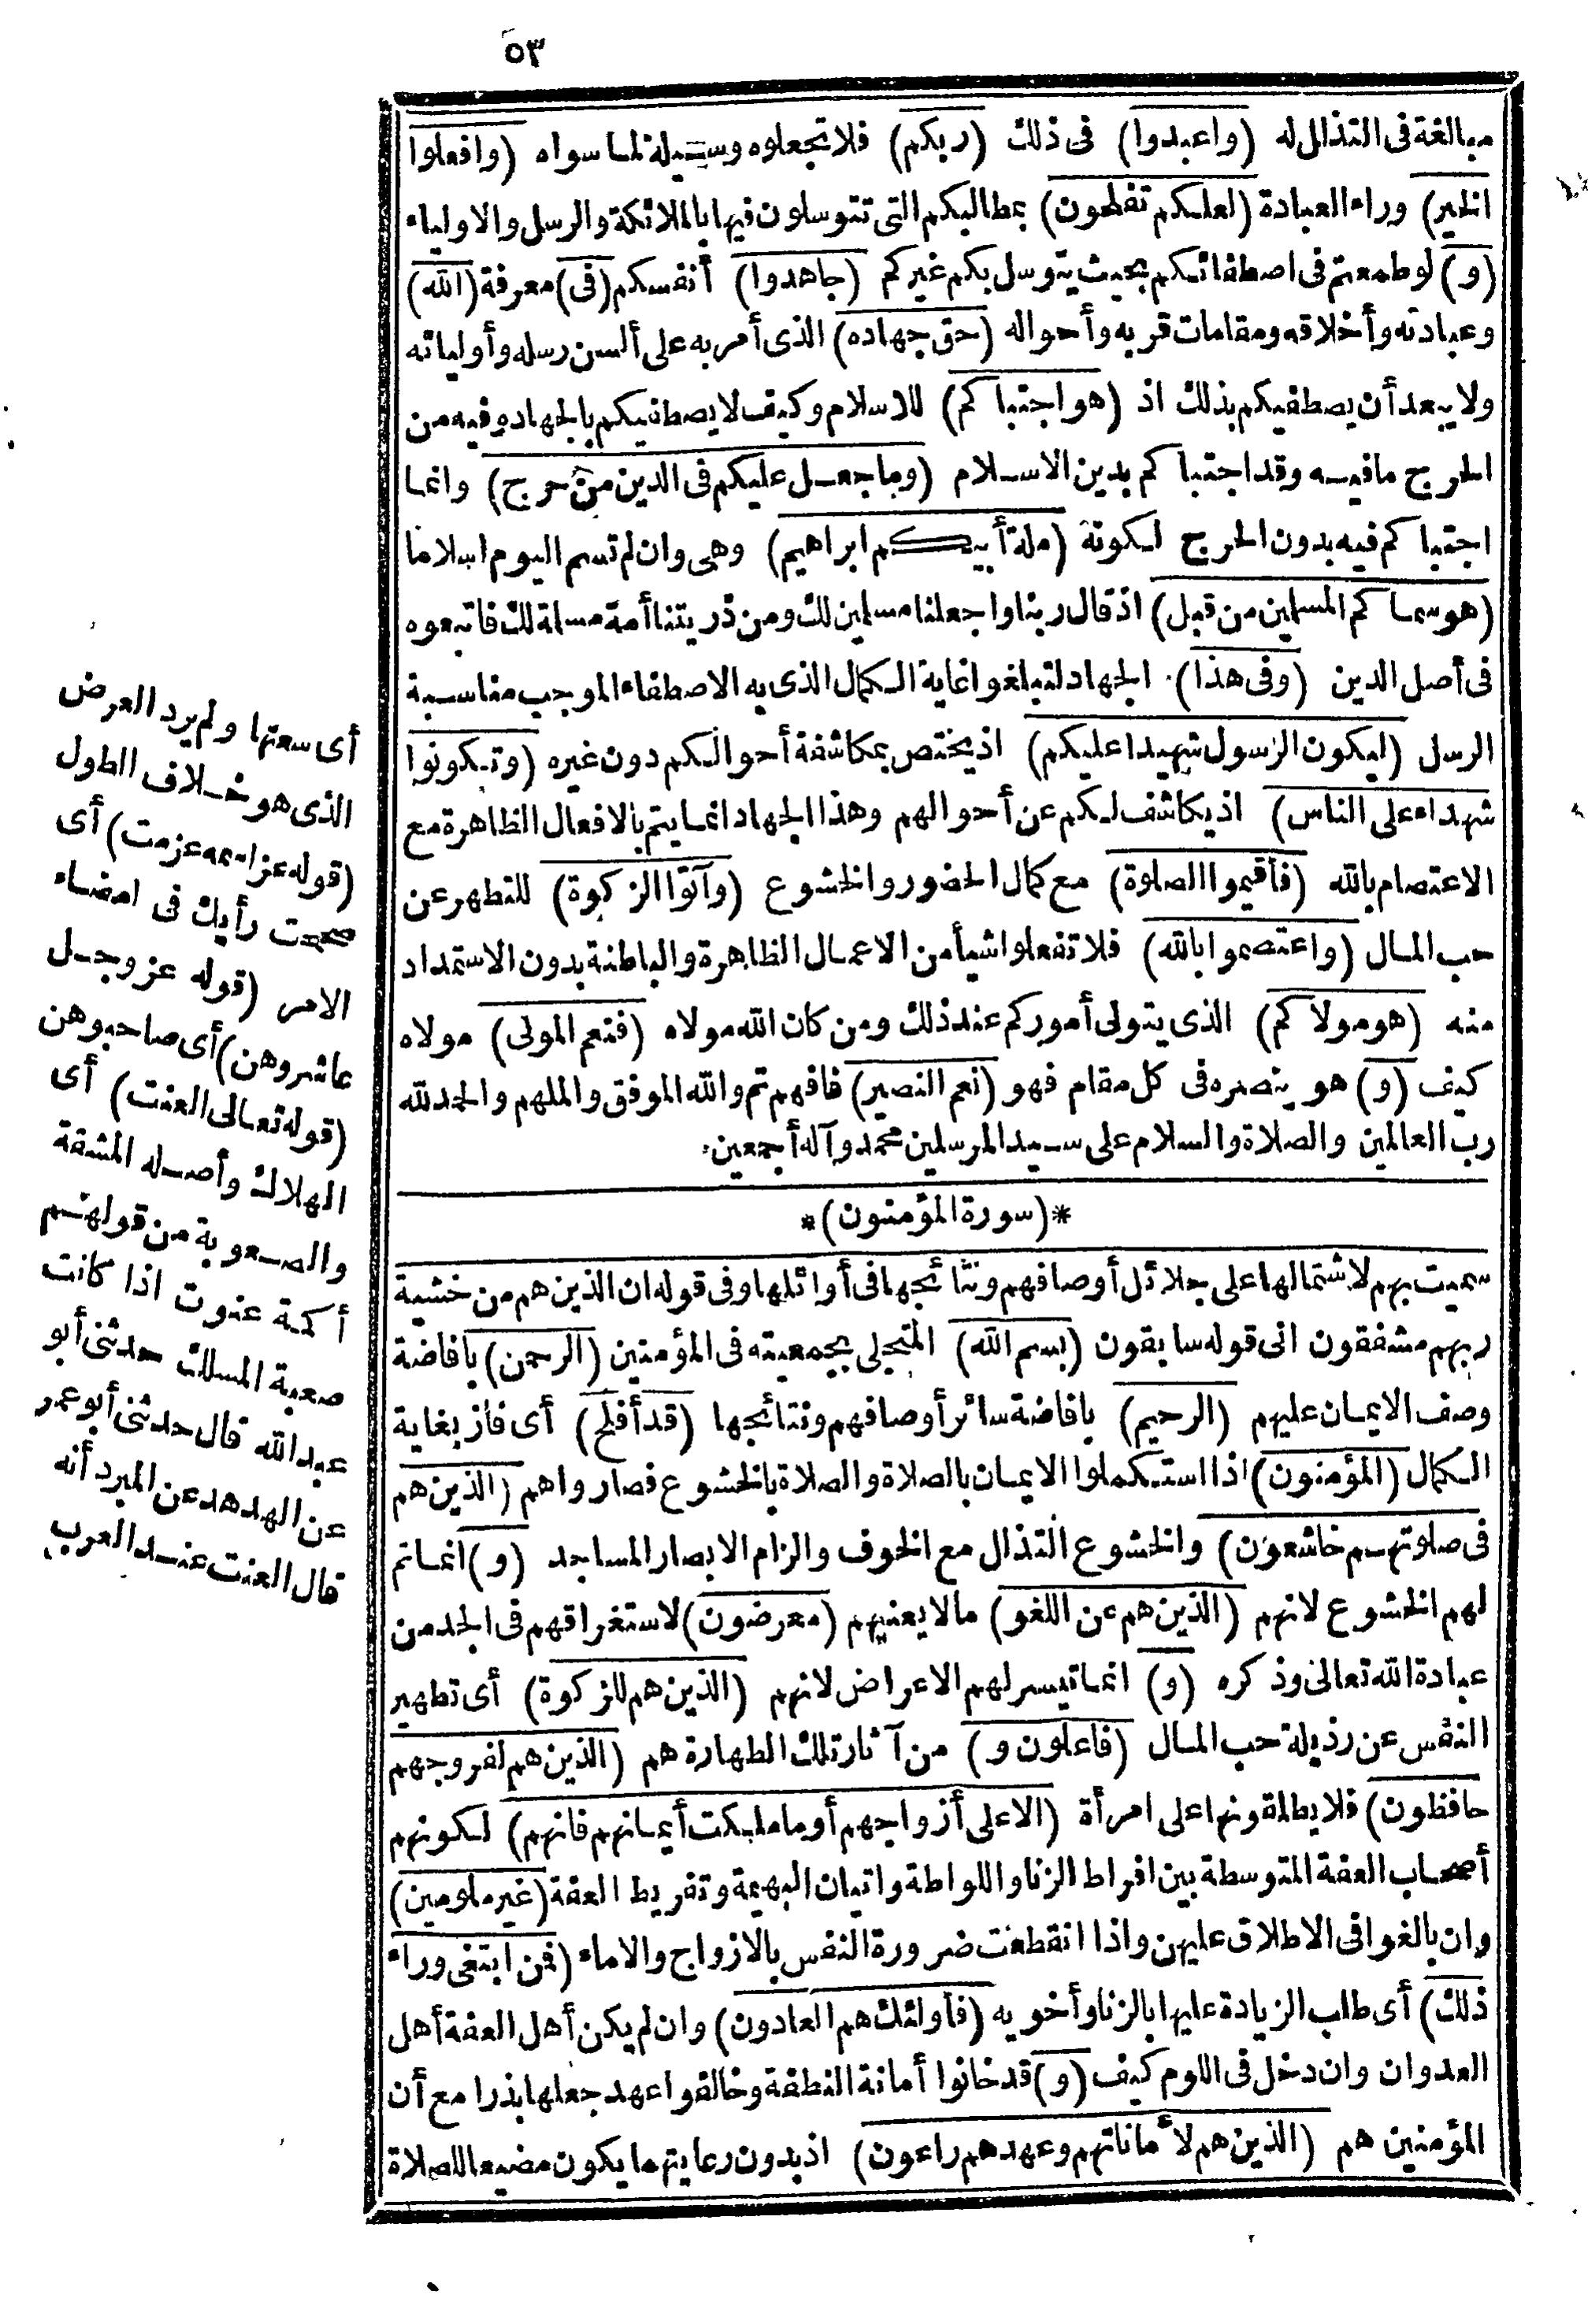 ٥٣
مبالغة فى التذلل له (واعبدوا) فى ذلك (ربكم) فلا تجعلوه وسيلة لما سواه (وافعلوا
الخير) وراء العبادة (لعلكم تفلحون) بمطالبكم التى تتوسلون فيها بالملائكة والرسل والاولياء
(و) لو طمعتم فى اصطفائكم بحيث يتوسل بكم غيركم (جاهدوا) أنفسكم (فى) معرفة (الله)
وعبادته وأخلاقه ومقامات قربه وأحواله (حق جهاده) الذى أمر به على ألسن رسله وأوليائه
ولا يبعد أن يصطفيكم بذلك اذ (هو اجتباكم) للاسلام وكيف لا يصطفيكم بالجهاد وفيه من
الحرج ما فيه وقد اجتباكم بدين الاسلام (وما جعل عليكم فى الدين من حرج) وانما
اجتباكم فيه بدون الحرج لكونه (ملة أبيكم ابراهيم) وهى وان لم تسم اليوم اسلاما
(هو سماكم المسلمين من قبل) اذ قال ربنا واجعلنا مسلمين لك ومن ذريتنا أمة مسلمة لك فاتبعوه
فى أصل الدين (وفى هذا) الجهاد لتبلغوا غاية الكمال الذى به الاصطفاء الموجب مناسبة
الرسل (ليكون الرسول شهيدا عليكم) اذ يختص بمكاشفة أحوالكم دون غيره (وتكونوا
شهداء على الناس) اذ يكاشف لكم عن أحوالهم وهذا الجهاد انما يتم بالافعال الظاهرة مع
الاعتصام بالله (فأقيموا الصلوة) مع كمال الحضور والخشوع (وآتوا الزكوة) للتطهر عن
حب المال (واعتصموا بالله) فلا تفعلوا شيأ من الاعمال الظاهرة والباطنة بدون الاستمداد
منه (هو مولاكم) الذى يتولى أموركم عند ذلك ومن كان الله مولاه (فنعم المولى) مولاه
كيف (و) هو ينصره فى كل مقام فهو (نعم النصير) فافهم تم والله الموفق والملهم والحمد لله
رب العالمين والصلاة والسلام على سيد المرسلين محمد وآله أجمعين
*(سورة المؤمنون)*
سميت بهم لاشتمالها على جلائل أوصافهم ونتائجها فى أوائلها وفى قوله ان الذين هم من خشية
ربهم مشفقون الى قوله سابقون (بسم الله) المتجلى بجمعيته فى المؤمنين (الرحمن) بافاضة
وصف الايمان عليهم (الرحيم) بافاضة سائر أوصافهم ونتائجها (قد أفلح) أى فاز بغاية
الكمال (المؤمنون) اذا استكملوا الايمان بالصلاة والصلاة بالخشوع فصاروا هم (الذين هم
فى صلوتهم خاشعون) والخشوع التذلل مع الخوف والزام الابصار المساجد (و) انما تم
لهم الخشوع لانهم (الذين هم عن اللغو) ما لا يعنيهم (معرضون) لاستغراقهم فى الجد من
عبادة الله تعالى وذكره (و) انما تيسر لهم الاعراض لانهم (الذين هم للزكوة) أى تطهير
النفس عن رذيلة حب المال (فاعلون و) من آثار تلك الطهارة هم (الذين هم لفروجهم
حافظون) فلا يطلقونها على امرأة (الا على أزواجهم أو ما ملكت أيمانهم فانهم) لكونهم
أصحاب العفة المتوسطة بين افراط الزنا واللواطة واتيان البهيمة وتفريط العفة (غير ملومين)
وان بالغوا فى الاطلاق عليهن واذا انقطعت ضرورة النفس بالازواج والاماء (فمن ابتغى وراء
ذلك) أى طلب الزيادة عليها بالزنا وأخويه (فأولئك هم العادون) وان لم يكن أهل العفة أهل
العدوان وان دخل فى اللوم كيف (و) قد خانوا أمانة النطفة وخالفوا عهد جعلها بذرا مع أن
المؤمنين هم (الذين هم لأماناتهم وعهدهم راعون) اذ بدون رعايتهما يكون مضيعا للصلاة
أى سعتها ولم يرد العرض
الذى هو خلاف الطول
(قوله عزاسمه عزمت) أى
صححت رأيك فى امضاء
الامر (قوله عز وجل
عاشروهن) أى صاحبوهن
(قوله تعالى العنت) أى
الهلاك وأصله المشقة
والصعوبة من قولهم
أكمة عنوت اذا كانت
صعبة المسلك حدثنى أبو
عبد الله قال حدثنى أبو عمر
عن الهدهد عن المبرد أنه
قال العنت عند العرب